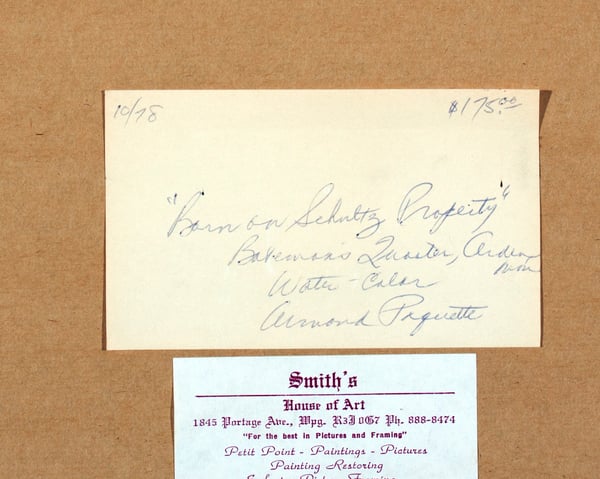 10/78
$175.00
"Barn on Schultz Property"
Bateman's Quarter, Arden
Man
Water-Color
Armand Paquette
Smith's
House of Art
1845 Portage Ave., Wpg. R3J 0G7 Ph. 888-8474
"For the best in Pictures and Framing"
Petit Point - Paintings - Pictures
Painting Restoring
Picture Framing